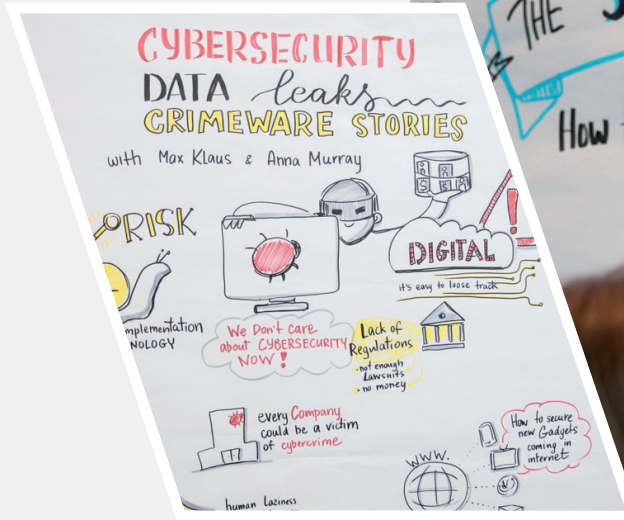 CYBERSECURITY
DATA leaks
CRIMEWARE STORIES
with Max Klaus & Anna Murray
RISK
DIGITAL
it's easy to loose track
mplementation
NOLOGY
We Don't care
about CYBERSECURITY
NOW!
Lack of
Regulations
• not enough
Lawsuits
• no money
every Company
could be a victim
of cybercrime
How to secure
new Gadgets
coming in
internet
WWW.
human laziness
THE
How